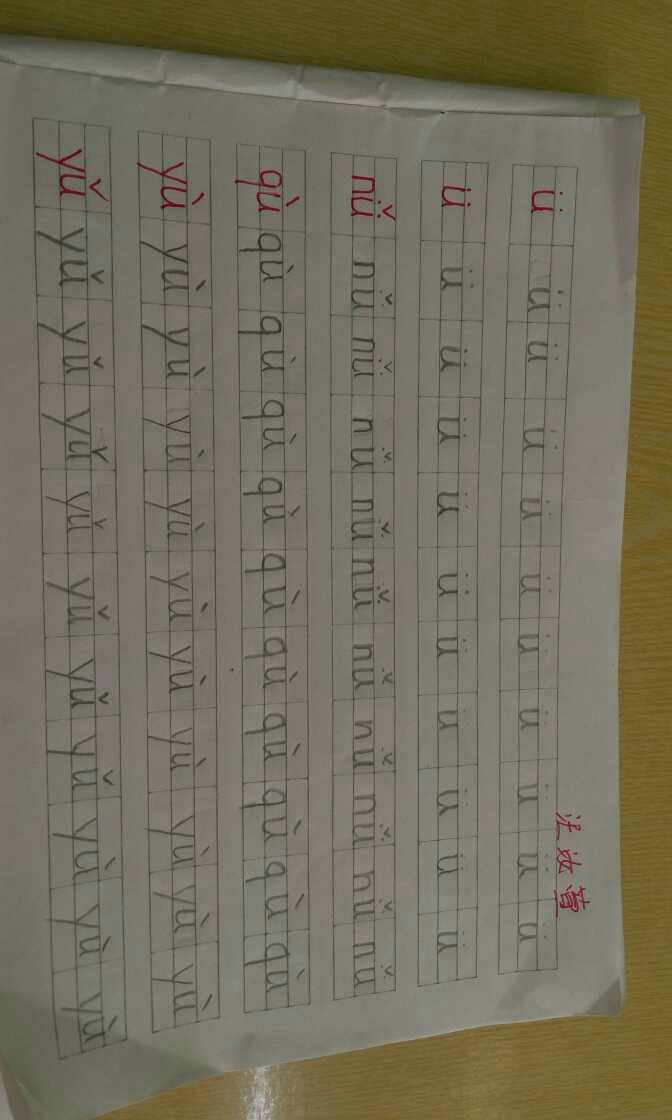 ü ü ü ü ü ü ü ü ü ü ü
ü ü ü ü ü ü ü ü ü ü ü
nǚ nǚ nǚ nǚ nǚ nǚ nǚ nǚ nǚ nǚ nǚ
qù qù qù qù qù qù qù qù qù qù qù
yù yù yù yù yù yù yù yù yù yù yù
yǔ yǔ yǔ yǔ yǔ yǔ yǔ yǔ yù yù yù